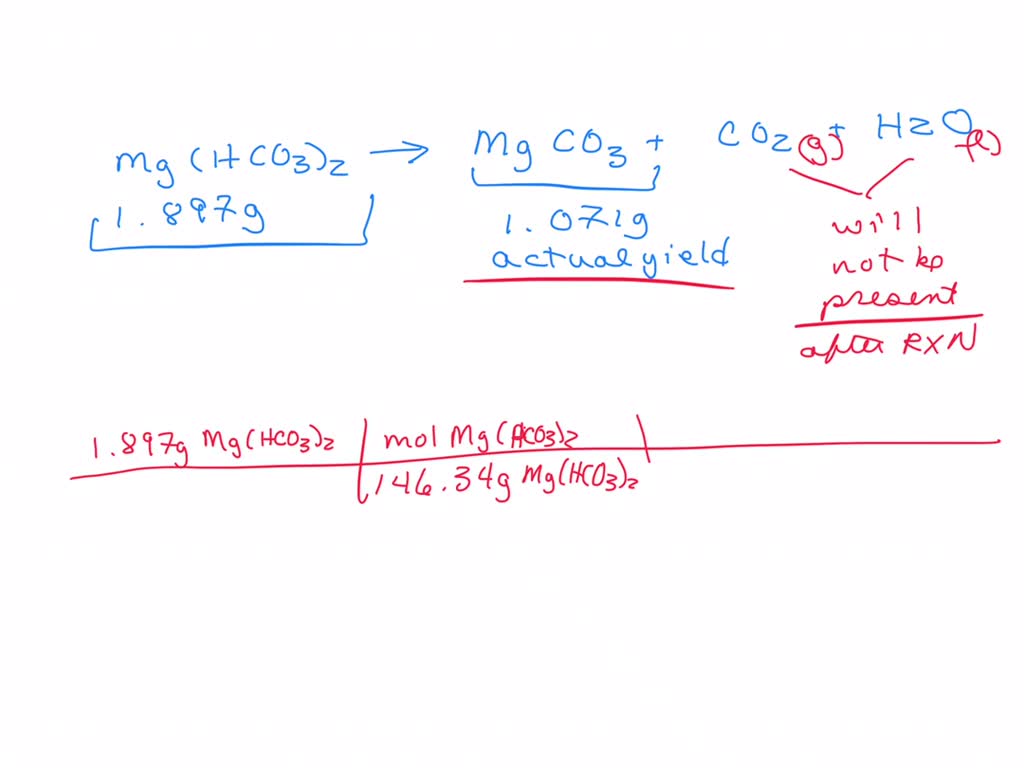 Mg(HCO3)2 → MgCO3 + CO2(g) + H2O(l)
1.897g
1.071g
actual yield
will
not be
present
after RXN
1.897g Mg(HCO3)2 | mol Mg(HCO3)2 |
146.34g Mg(HCO3)2